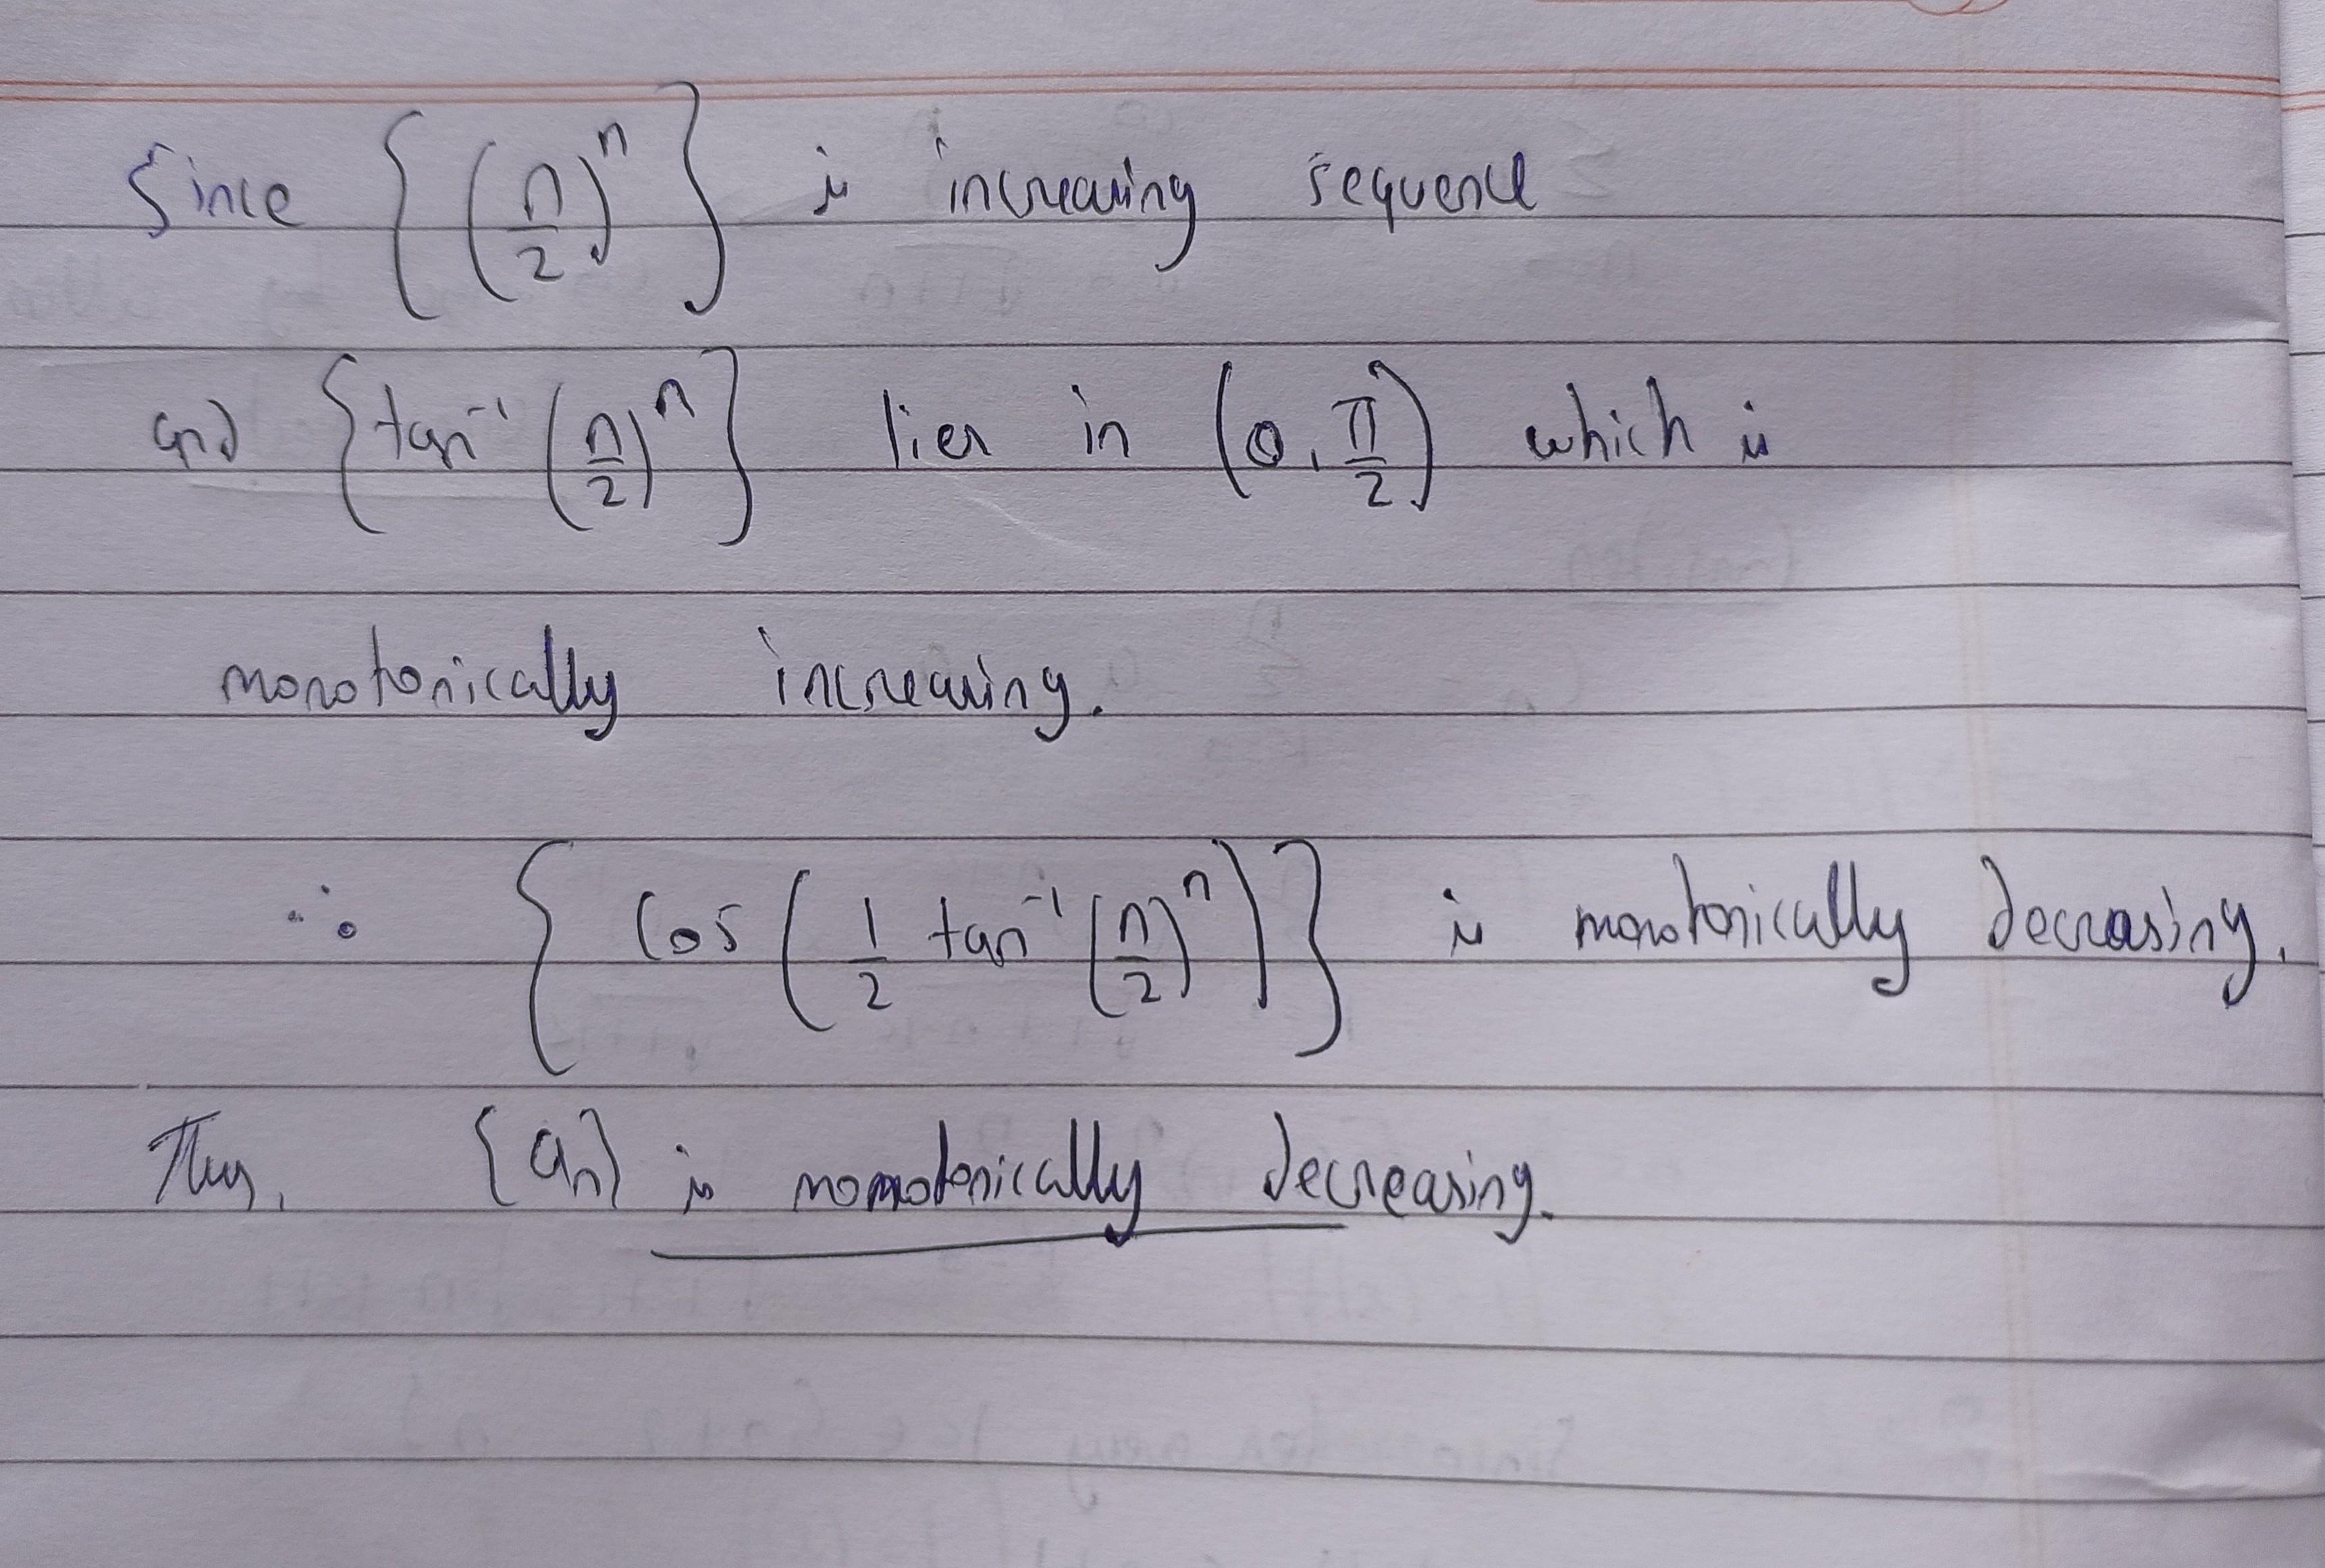 Since {(n/2)^n} is increasing sequence
and {tan⁻¹(n/2)^n} lies in (0, π/2) which is
monotonically increasing.
∴ {Cos(1/2 tan⁻¹(n/2)^n)} is monotonically decreasing.
Thus, {a_n} is monotonically decreasing.